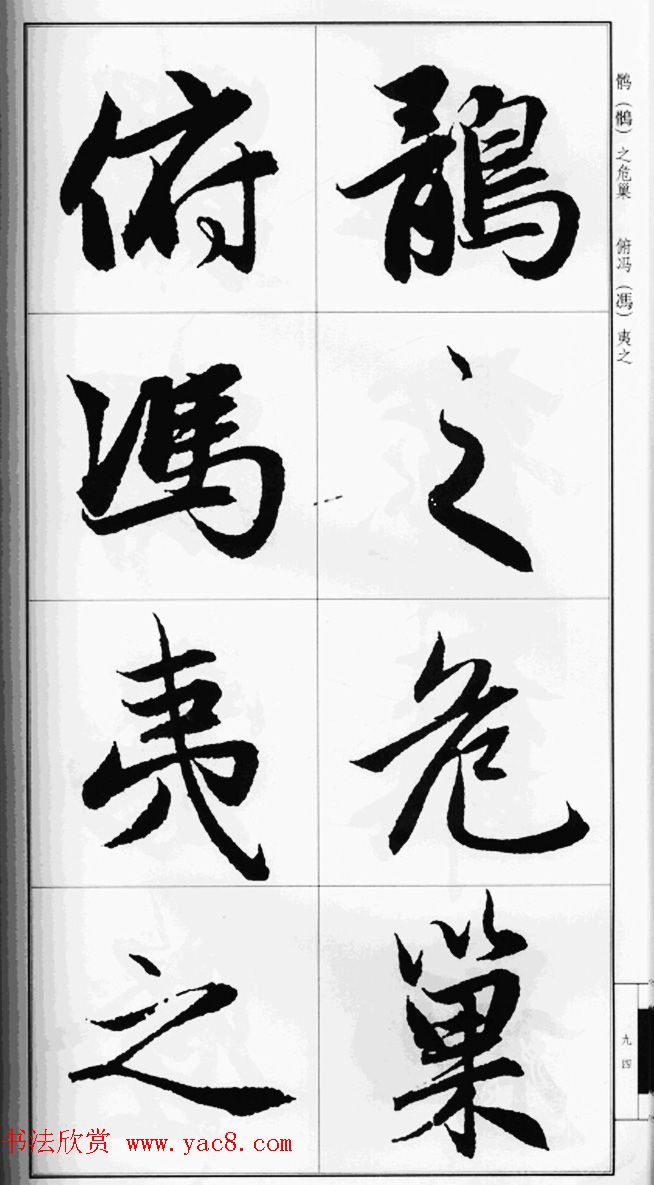 鹘（鶻）之危巢　俯冯（馮）夷之
鶻之危巢
俯馮夷之
九四
书法欣赏 www.yac8.com